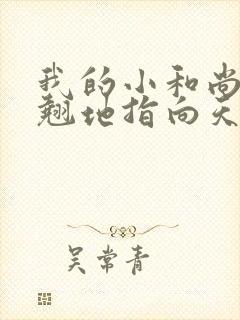 我的小和尚
翘地指向天
吴常青